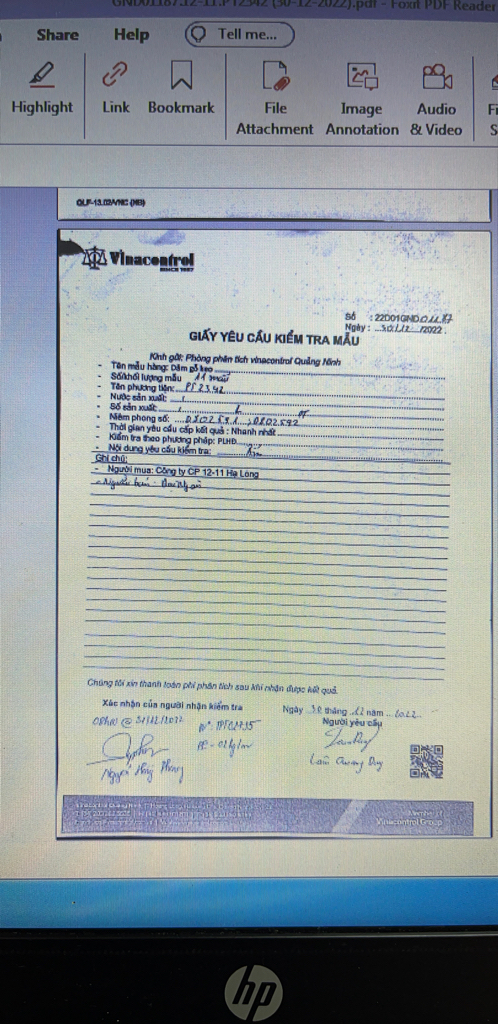 GND01187.12-11.PT2342 (30-12-2022).pdf - Foxit PDF Reader
Share Help Tell me...
Highlight Link Bookmark File Attachment Image Annotation Audio & Video
QLF-13.02/VNC (HB)
Vinacontrol
SINCE 1957
Số : 22D01GND01187
Ngày : 30/12 /2022.
GIẤY YÊU CẦU KIỂM TRA MẪU
Kính gửi: Phòng phân tích vinacontrol Quảng Ninh
- Tên mẫu hàng: Dăm gỗ keo
- Số/khối lượng mẫu 11 mẫu
- Tên phương tiện: PT2342
- Nước sản xuất: /
- Số sản xuất: /
- Niêm phong số: 0802591, 0802592
- Thời gian yêu cầu cấp kết quả : Nhanh nhất
- Kiểm tra theo phương pháp: PLHĐ
- Nội dung yêu cầu kiểm tra: Ẩm
Ghi chú:
- Người mua: Công ty CP 12-11 Hạ Long
- Người bán:
Chúng tôi xin thanh toán phí phân tích sau khi nhận được kết quả.
Xác nhận của người nhận kiểm tra
Ngày 30 tháng 12 năm 2022
Người yêu cầu
@ 31/12/2022
Nguyễn Hồng Phong
Lâm Quang Duy
Member of
Vinacontrol Group
hp